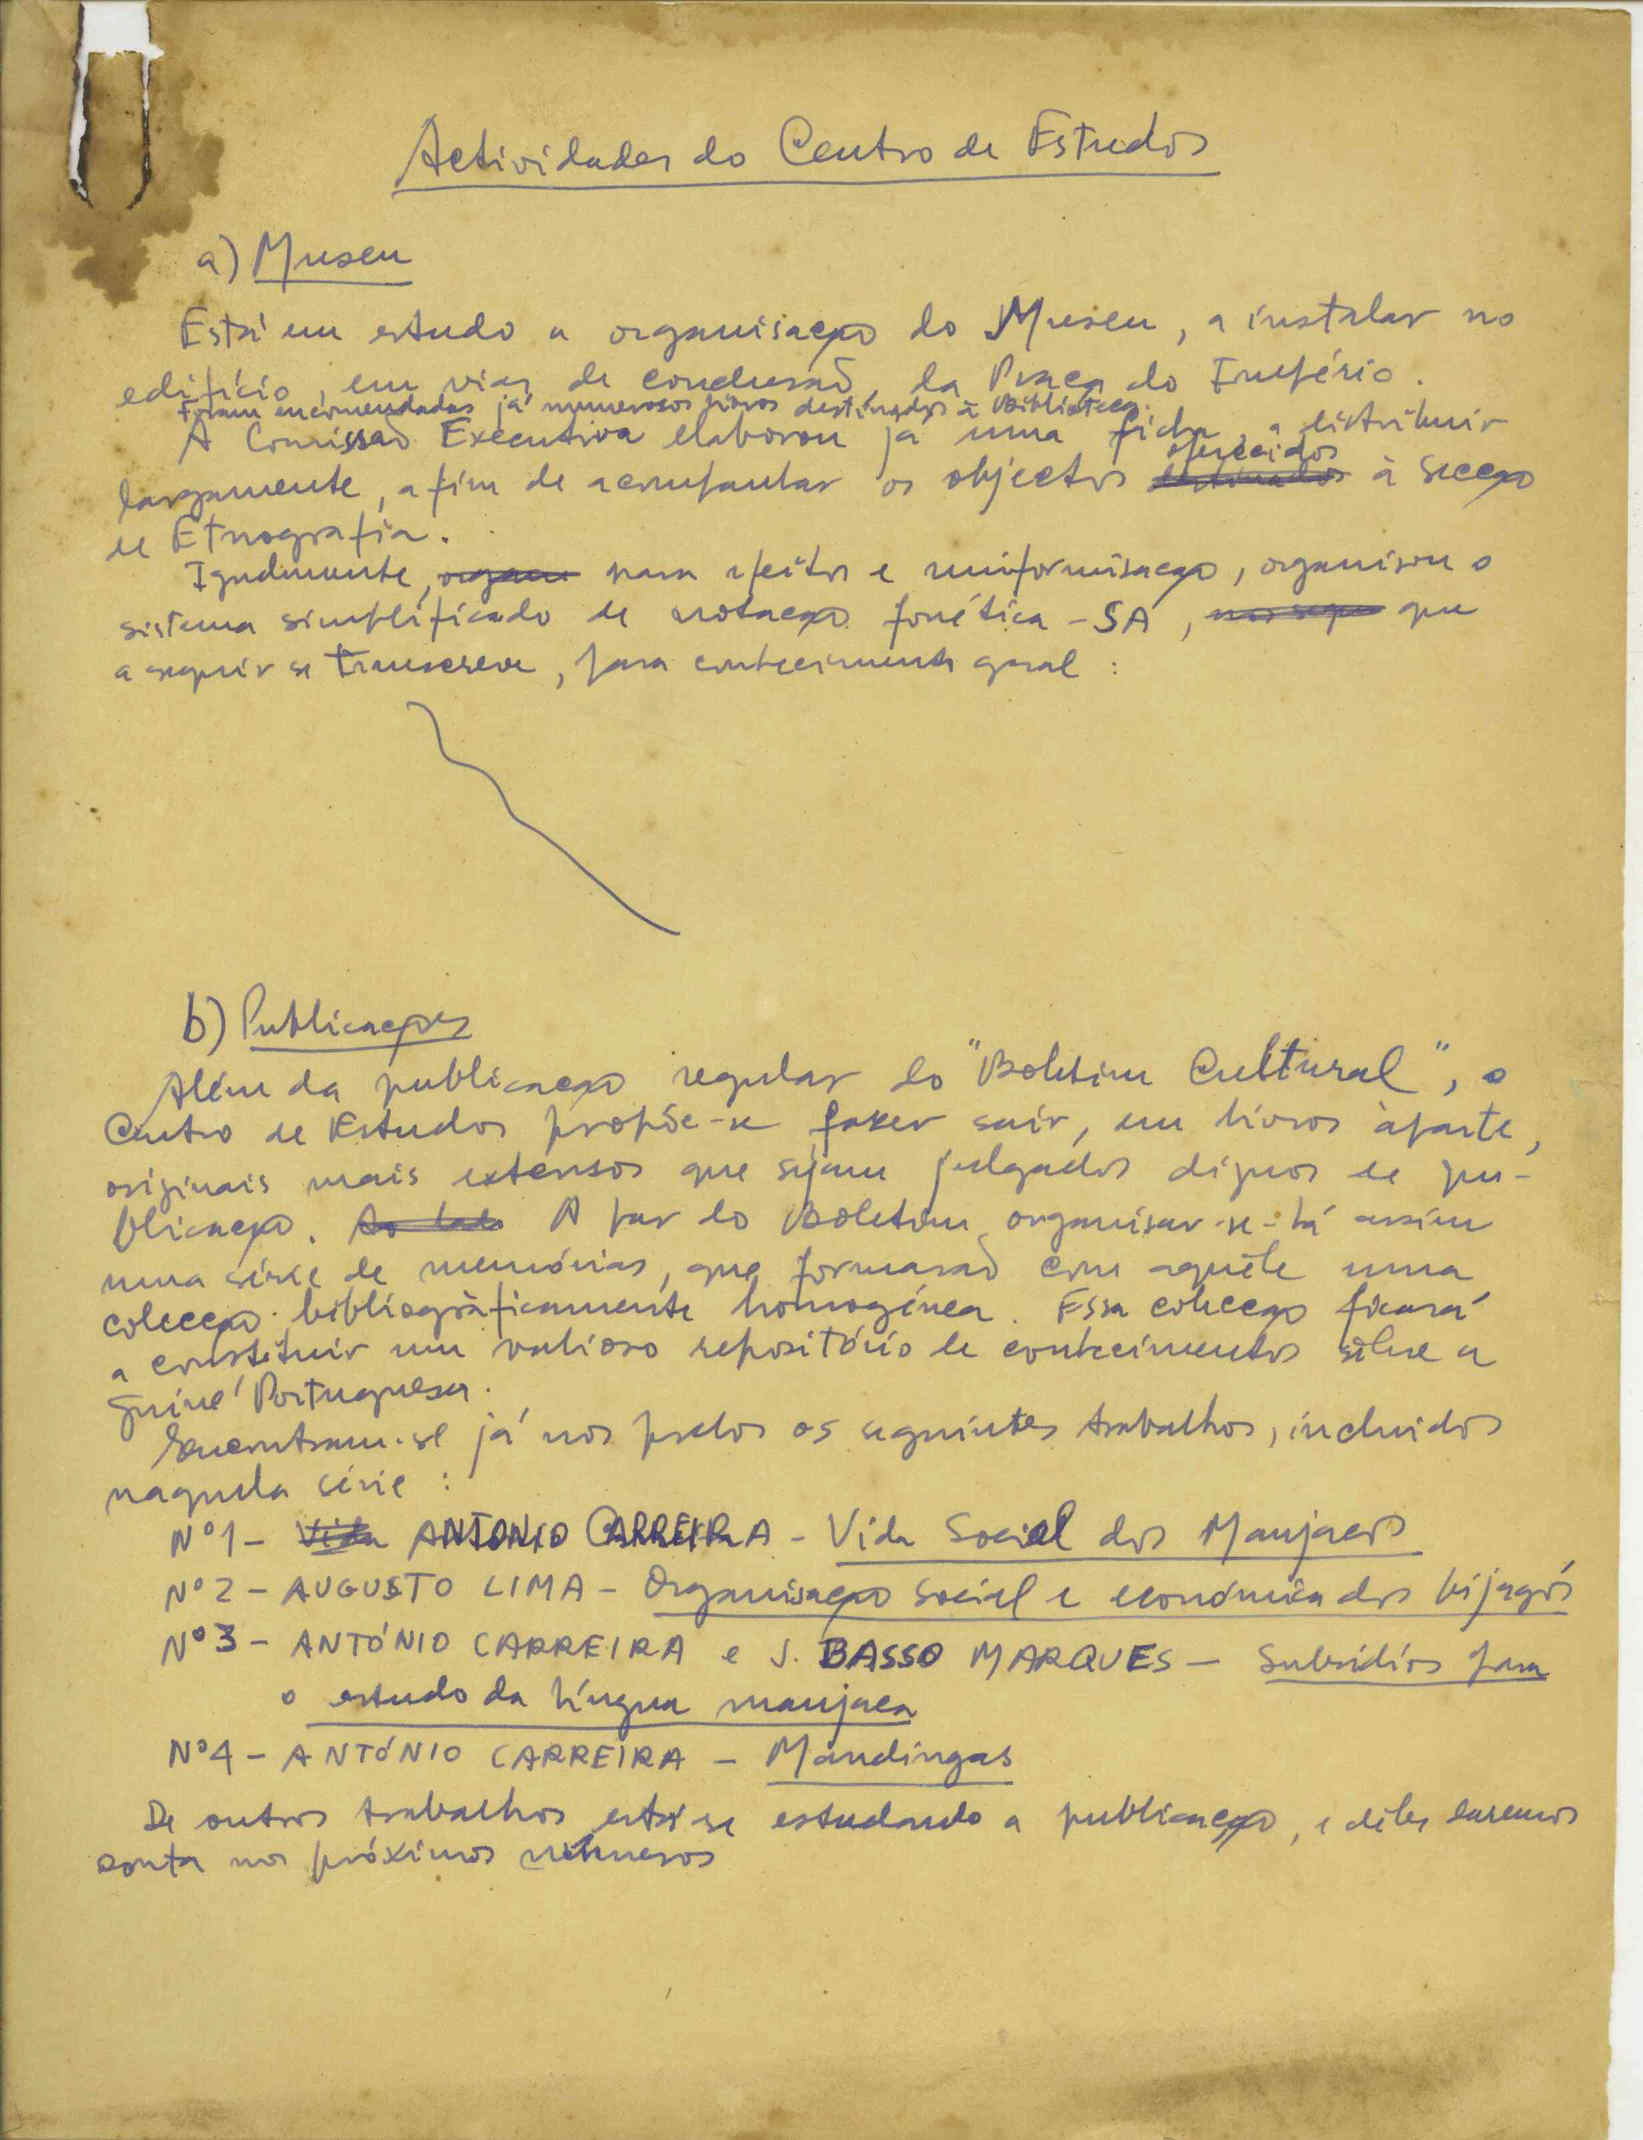 Actividades do Centro de Estudos
a) Museu
Está em estudo a organisação do Museu, a instalar no
edifício, em vias de conclusão, da Praça do Império.
Foram encomendadas já numerosos livros destinados à Biblioteca.
A Comissão Executiva elaborou já uma ficha, a distribuir
oferecidos
largamente, a fim de acompanhar os objectos destinados à Secção
de Etnografia.
Igualmente, para efeitos e uniformisação, organisou o
sistema simplificado de notação fonética - SA, que
a seguir se transcreve, para conhecimento geral :
b) Publicações
Além da publicação regular do "Boletim Cultural", o
Centro de Estudos propõe-se fazer sair, em livros àparte,
originais mais extensos que sejam julgados dignos de pu-
blicação. Ao lado A par do Boletim organisar-se-há assim
uma série de memórias, que formarão com aquêle uma
colecção bibliogràficamente homogénea. Essa colecção ficará
a constituir um valioso repositório de conhecimentos sôbre a
Guiné Portuguesa.
Encontram-se já nos prelos os seguintes trabalhos, incluidos
naquela série :
Nº1 - Vida ANTONIO CARREIRA - Vida Social dos Manjacos
Nº2 - AUGUSTO LIMA - Organisação Social e económica dos bijagós
Nº3 - ANTÓNIO CARREIRA e J. BASSO MARQUES - Subsídios para
o estudo da língua manjaca
Nº4 - ANTÓNIO CARREIRA - Mandingas
De outros trabalhos está-se estudando a publicação, e deles daremos
conta nos próximos números